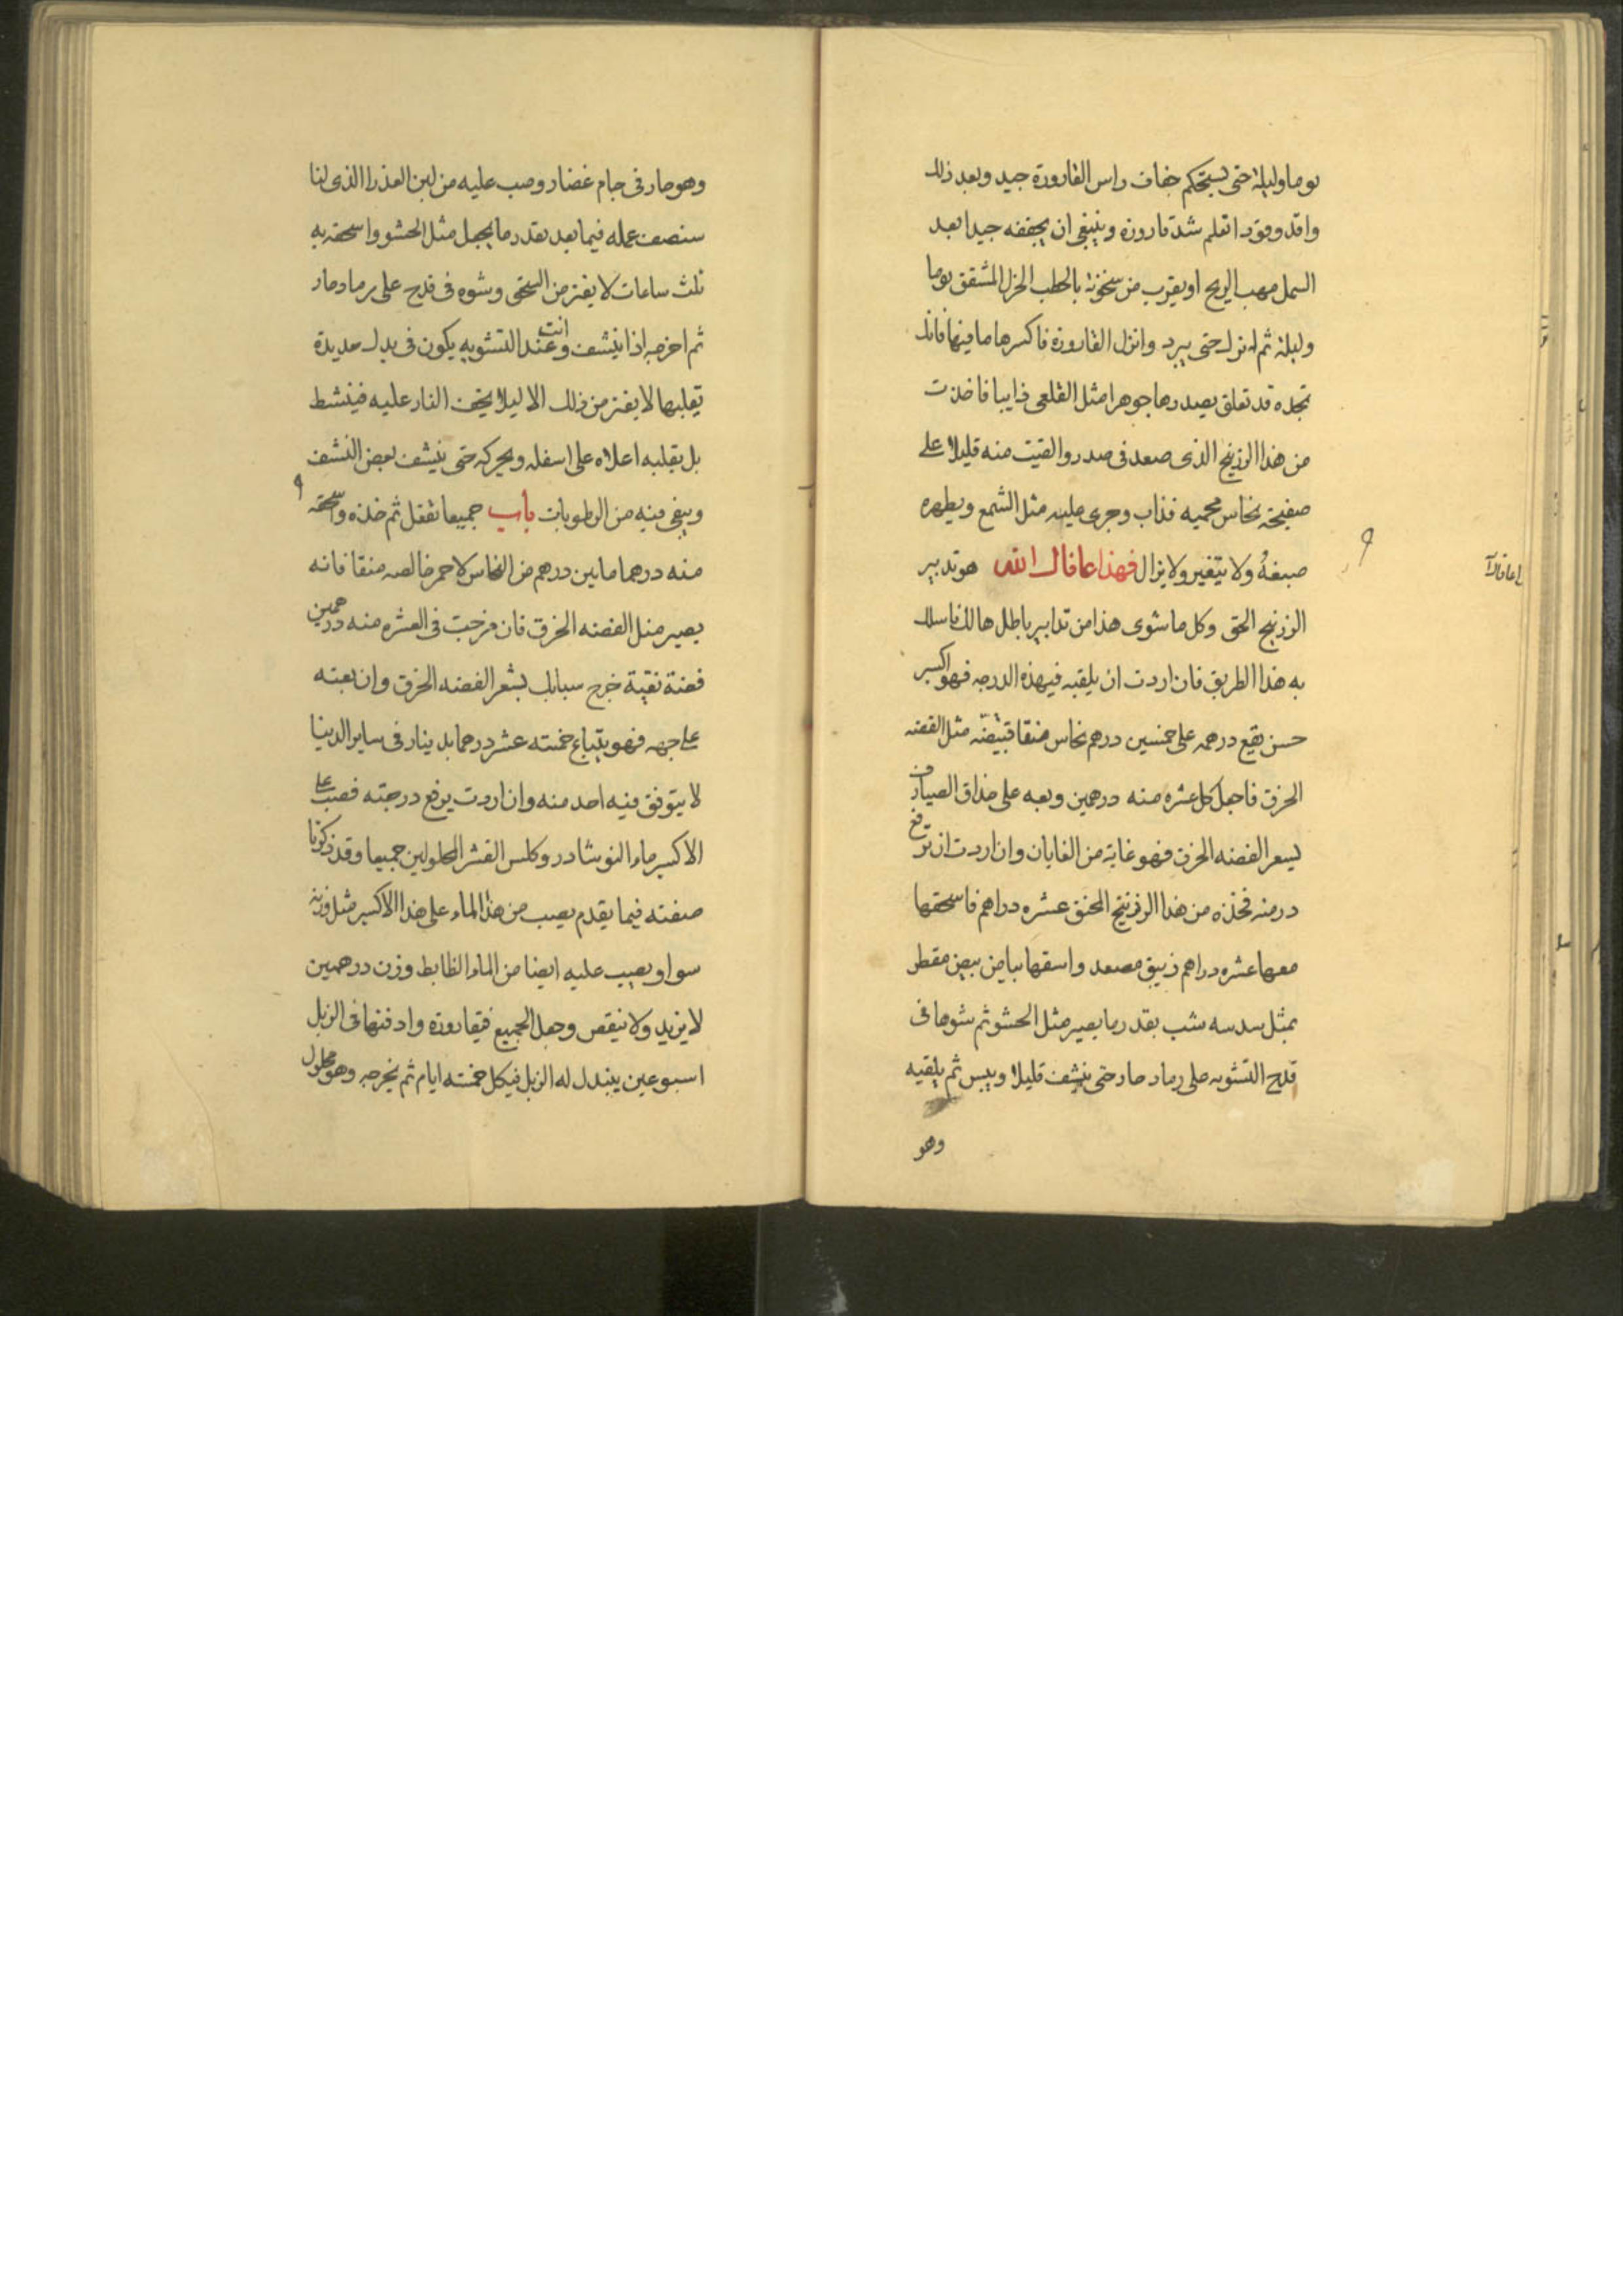 يوما وليلة حتى يستحكم جفاف راس القارورة جيد وبعد ذلك
واقد وقودا تعلم شد قارورة وينبغى ان يجففه جيدا بعد
العمل مهب الريح او يقرب من سخونة بالحطب الجزل المشقق يوما
وليلة ثم انزل حتى يبرد وانزل القارورة فاكسرها ما فيها فانك
تجده قد تعلق بصدرها جوهرا مثل القلعى ذايبا فاخذت
من هذا الزرنيخ الذى صعد فى صدر والقيت منه قليلا على
صفيحة نحاس محميه فذاب وجرى عليه مثل الشمع ويطهره
صبغهُ ولا يتغير ولا يزال فهذا عافاك الله هو تدبير
الزرنيخ الحق وكل ما سوى هذا من تدابير باطل هالك فاسلك
به هذا الطريق فان اردت ان يلقيه فيهذه الدرجه فهو اكسير
حسن يقع درهمه على خمسين درهم نحاس منقا قبيضه مثل الفضه
الحرق فاجعل كل عشره منه درهمين وبعه على حذاق الصيارف
بسعر الفضه الحرق فهو غاية من الغايات وان اردت ان ترفع
درمنه فخذه من هذا الزرنيخ المحنق عشره دراهم فاسحقها
معها عشره دراهم زيبق مصعد واسقها بياض بيض مقطر
بمثل سدسه شب بقدر ما يصير مثل الحشو ثم شوها فى
قدح التشويه على رماد حار حتى ينشف قليلا ويبس ثم يلقيه
وهو
وهو حار فى جام غضار وصب عليه من لبن العذرا الذى لنا
سنصف عمله فيما بعد بقدر ما يجعل مثل الحشو واسحقه به
ثلث ساعات لا يفتر من السحق وشوه فى قدح على رماد حار
ثم اخرجه اذا ينشف وعند انت التشويه يكون فى يدك حديدة
تقلبها لا يفتر من ذلك الا ليلا يخف النار عليه فينشط
بل يقلبه اعلاه على اسفله ويحركه حتى ينشف بعض النشف
ويبقى فيه من الرطوبات باب جميعا تفعل ثم خذه واسحقه
منه درهما مايين درهم من النحاس الاحمر خالصه منقا فانه
يصير مثل الفضه الحرق فان مزجت فى العشره منه درهمين
فضة نقية خرج سبايك بسعر الفضه الحرق وان بعته
على جهه فهو يتباع خمسة عشر درهما بدينار فى ساير الدنيا
لا يتوقف فيه احد منه وان اردت يرفع درجته فصب على
الاكسير ماء النوشادر وكلس القشر المحلولين جميعا وقد ذكرنا
صفته فيما يقدم يصب من هذا الماء على هذا الاكسير مثل وزنه
سوا ويصب عليه ايضا من الماء الظابط وزن درهمين
لا يزيد ولا ينقص وجعل الجميع فيقاروره وادفنها فى الزبل
اسبوعين يبدل له الزبل فيكل خمسة ايام ثم يخرجه وهو محلول